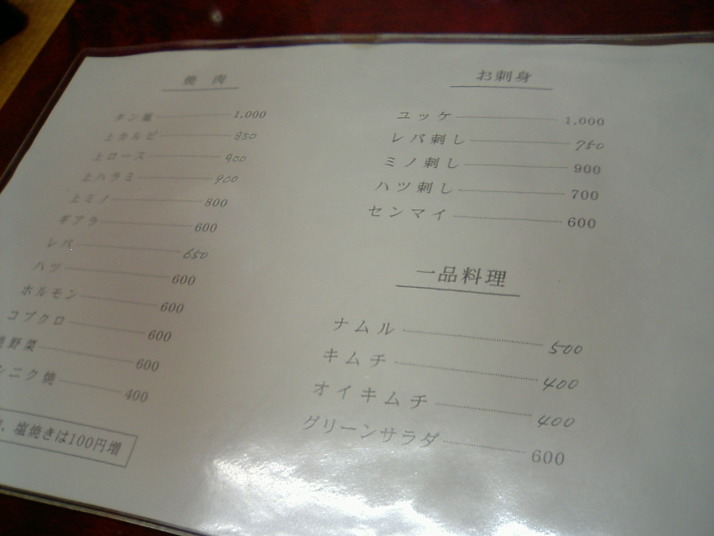 焼肉
タン塩 1,000
上カルビ 850
上ロース 900
上ハラミ 900
上ミノ 800
ギアラ 600
レバ 650
ハツ 600
ホルモン 600
コブクロ 600
野菜 600
ニク焼 400
塩焼きは100円増
お刺身
ユッケ 1,000
レバ刺し 750
ミノ刺し 900
ハツ刺し 700
センマイ 600
一品料理
ナムル 500
キムチ 400
オイキムチ 400
グリーンサラダ 600